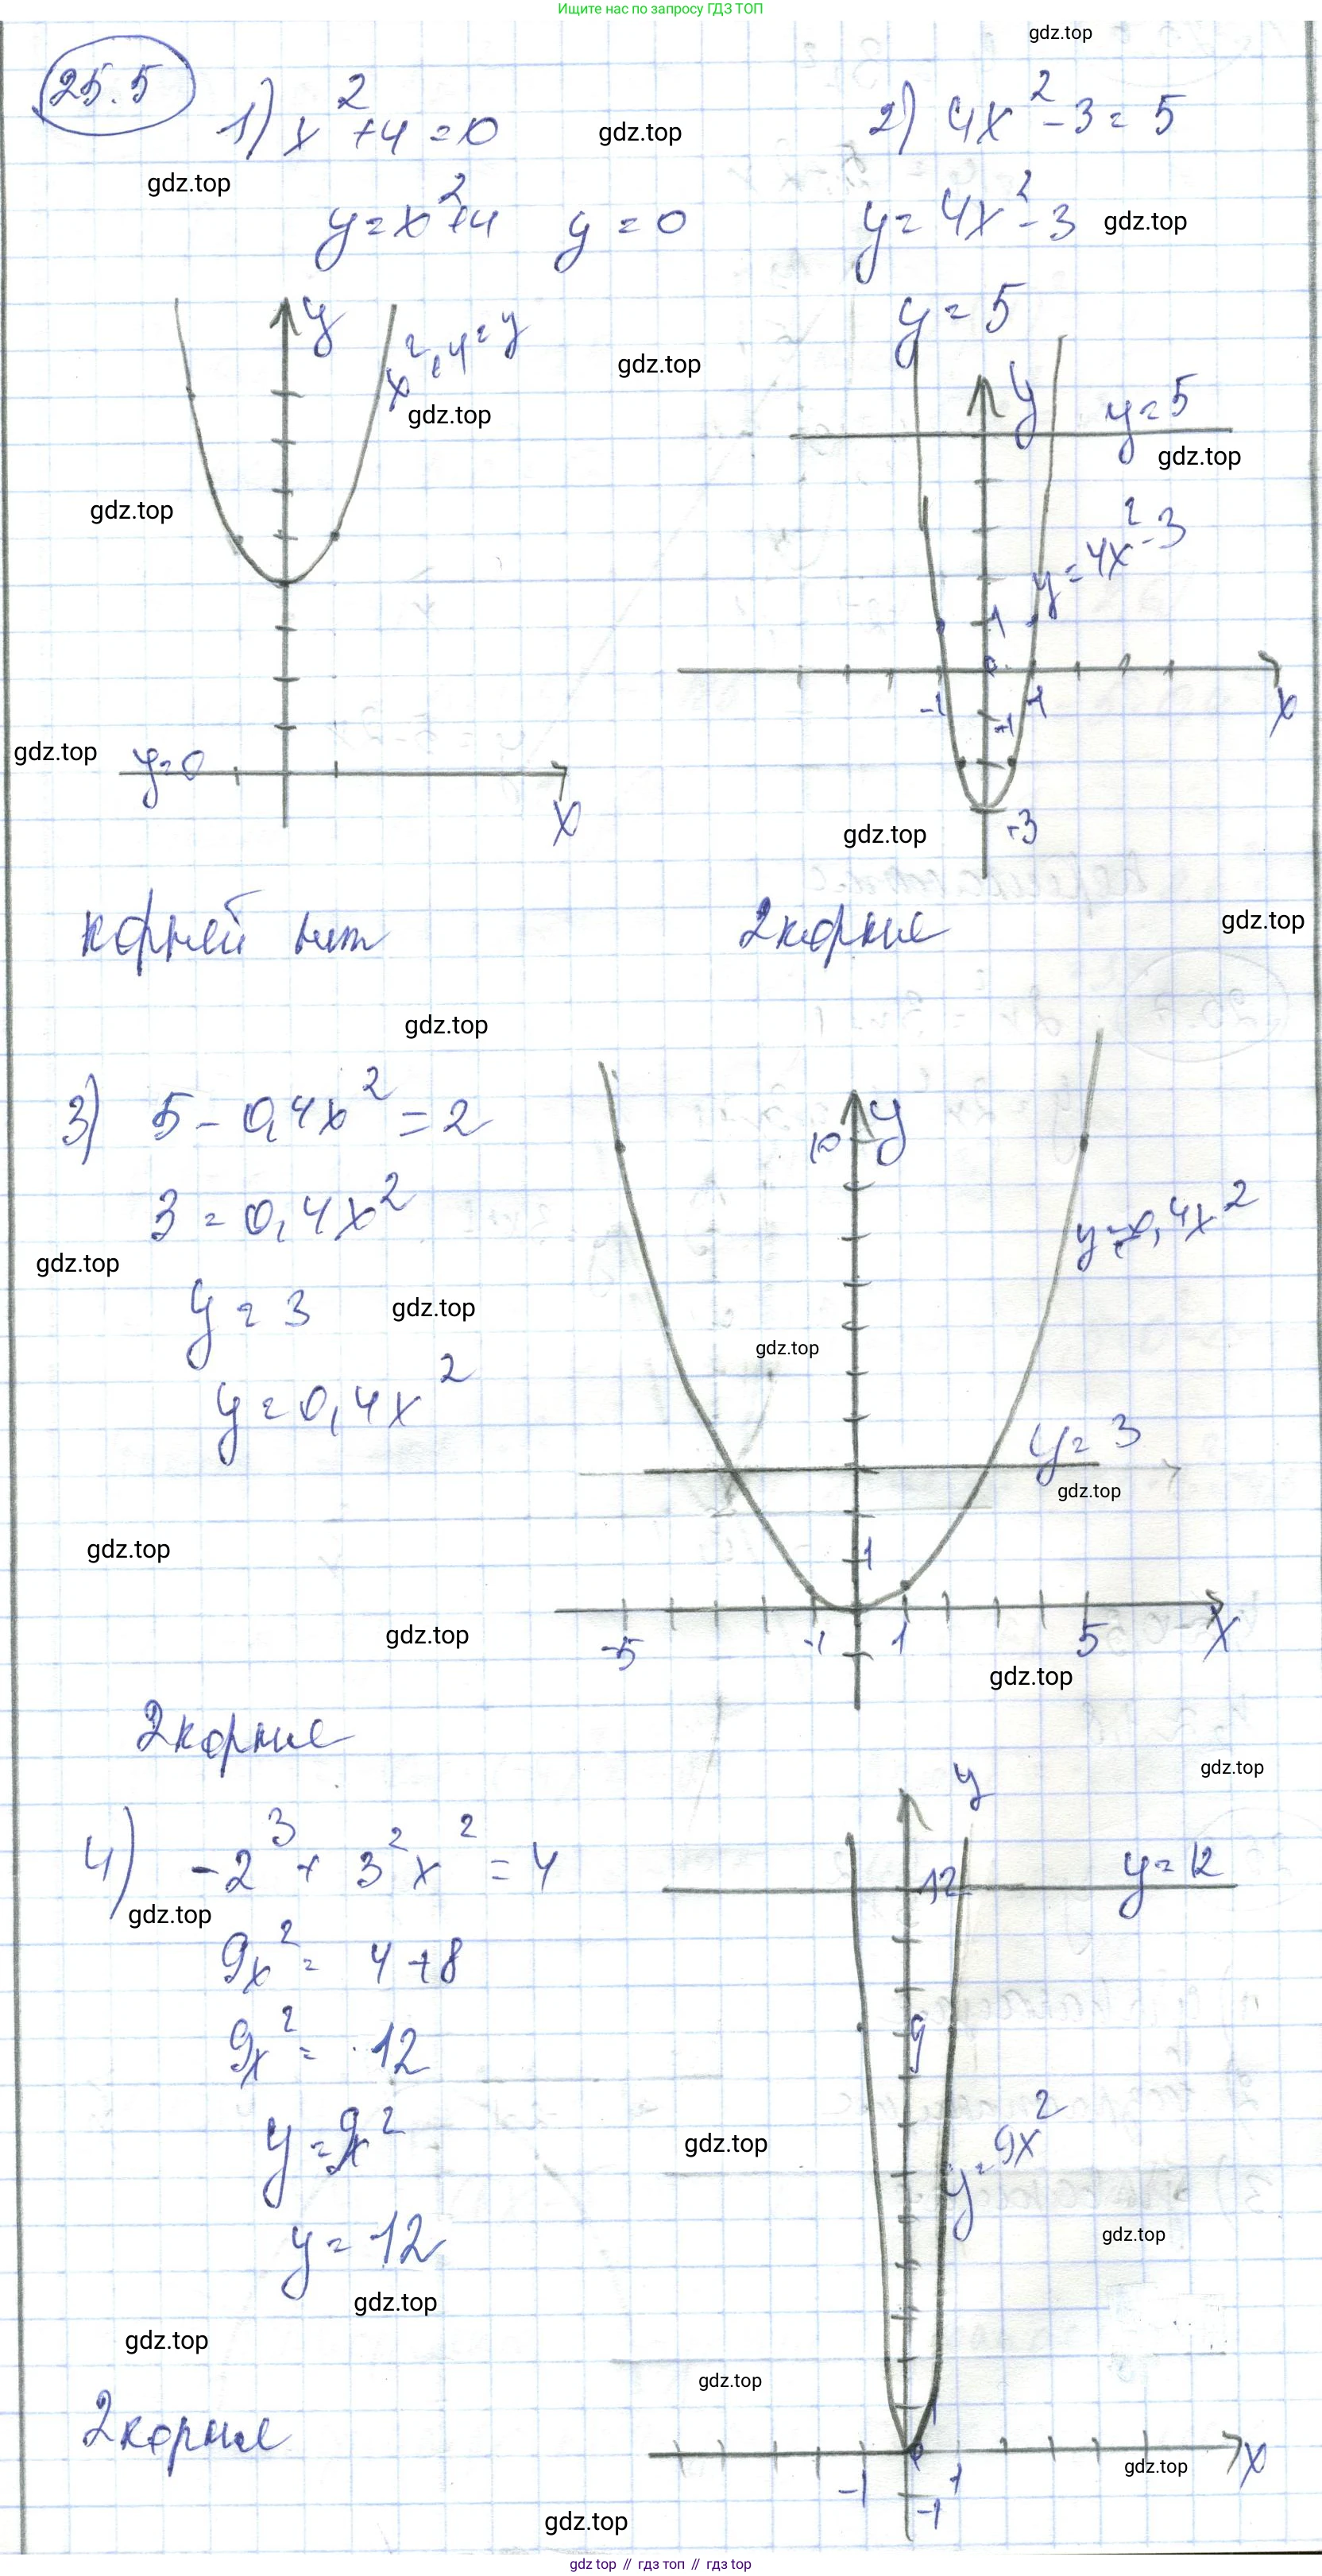 Ищите нас по запросу ГДЗ ТОП
gdz.top
25.5
1) x² + 4 = 0
gdz.top
2) 4x² - 3 = 5
gdz.top
y = x² + 4 y = 0
y = 4x² - 3
gdz.top
y = 5
y
x² + 4 = y
gdz.top
gdz.top
y
y = 5
gdz.top
gdz.top
y = 4x² - 3
1
0
-1
-1
1
x
gdz.top
y = 0
x
-3
gdz.top
корней нет
2 корня
gdz.top
gdz.top
3) 5 - 0,4x² = 2
10
y
3 = 0,4x²
y = 0,4x²
gdz.top
y = 3
gdz.top
gdz.top
y = 0,4x²
y = 3
gdz.top
gdz.top
1
gdz.top
-5
-1
1
5
x
gdz.top
2 корня
gdz.top
y
4) -2³ + 3²x² = 4
12
y = 12
gdz.top
9x² = 4 + 8
9x² = 12
9
y = 9x²
gdz.top
y = 9x²
y = 12
gdz.top
gdz.top
gdz.top
gdz.top
2 корня
1
0
-1
1
-1
x
gdz.top
gdz.top
gdz.top // гдз топ // гдз top